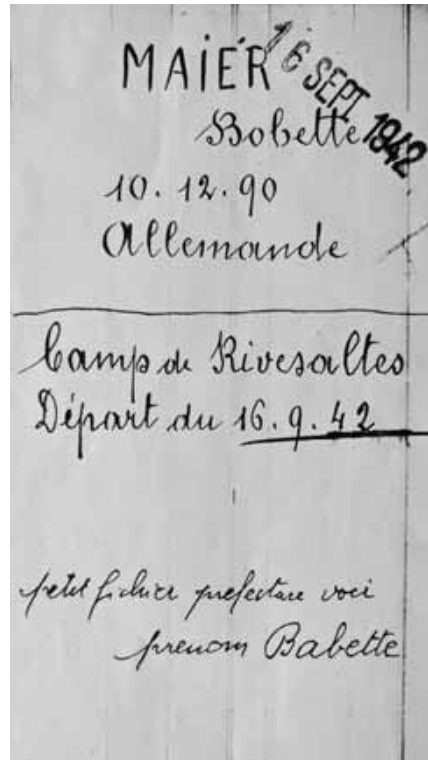 MAIER
16 SEPT. 1942
Bobette
10.12.90
Allemande
Camp de Rivesaltes
Départ du 16.9.42
petit fichier prefecture voir
prenom Babette